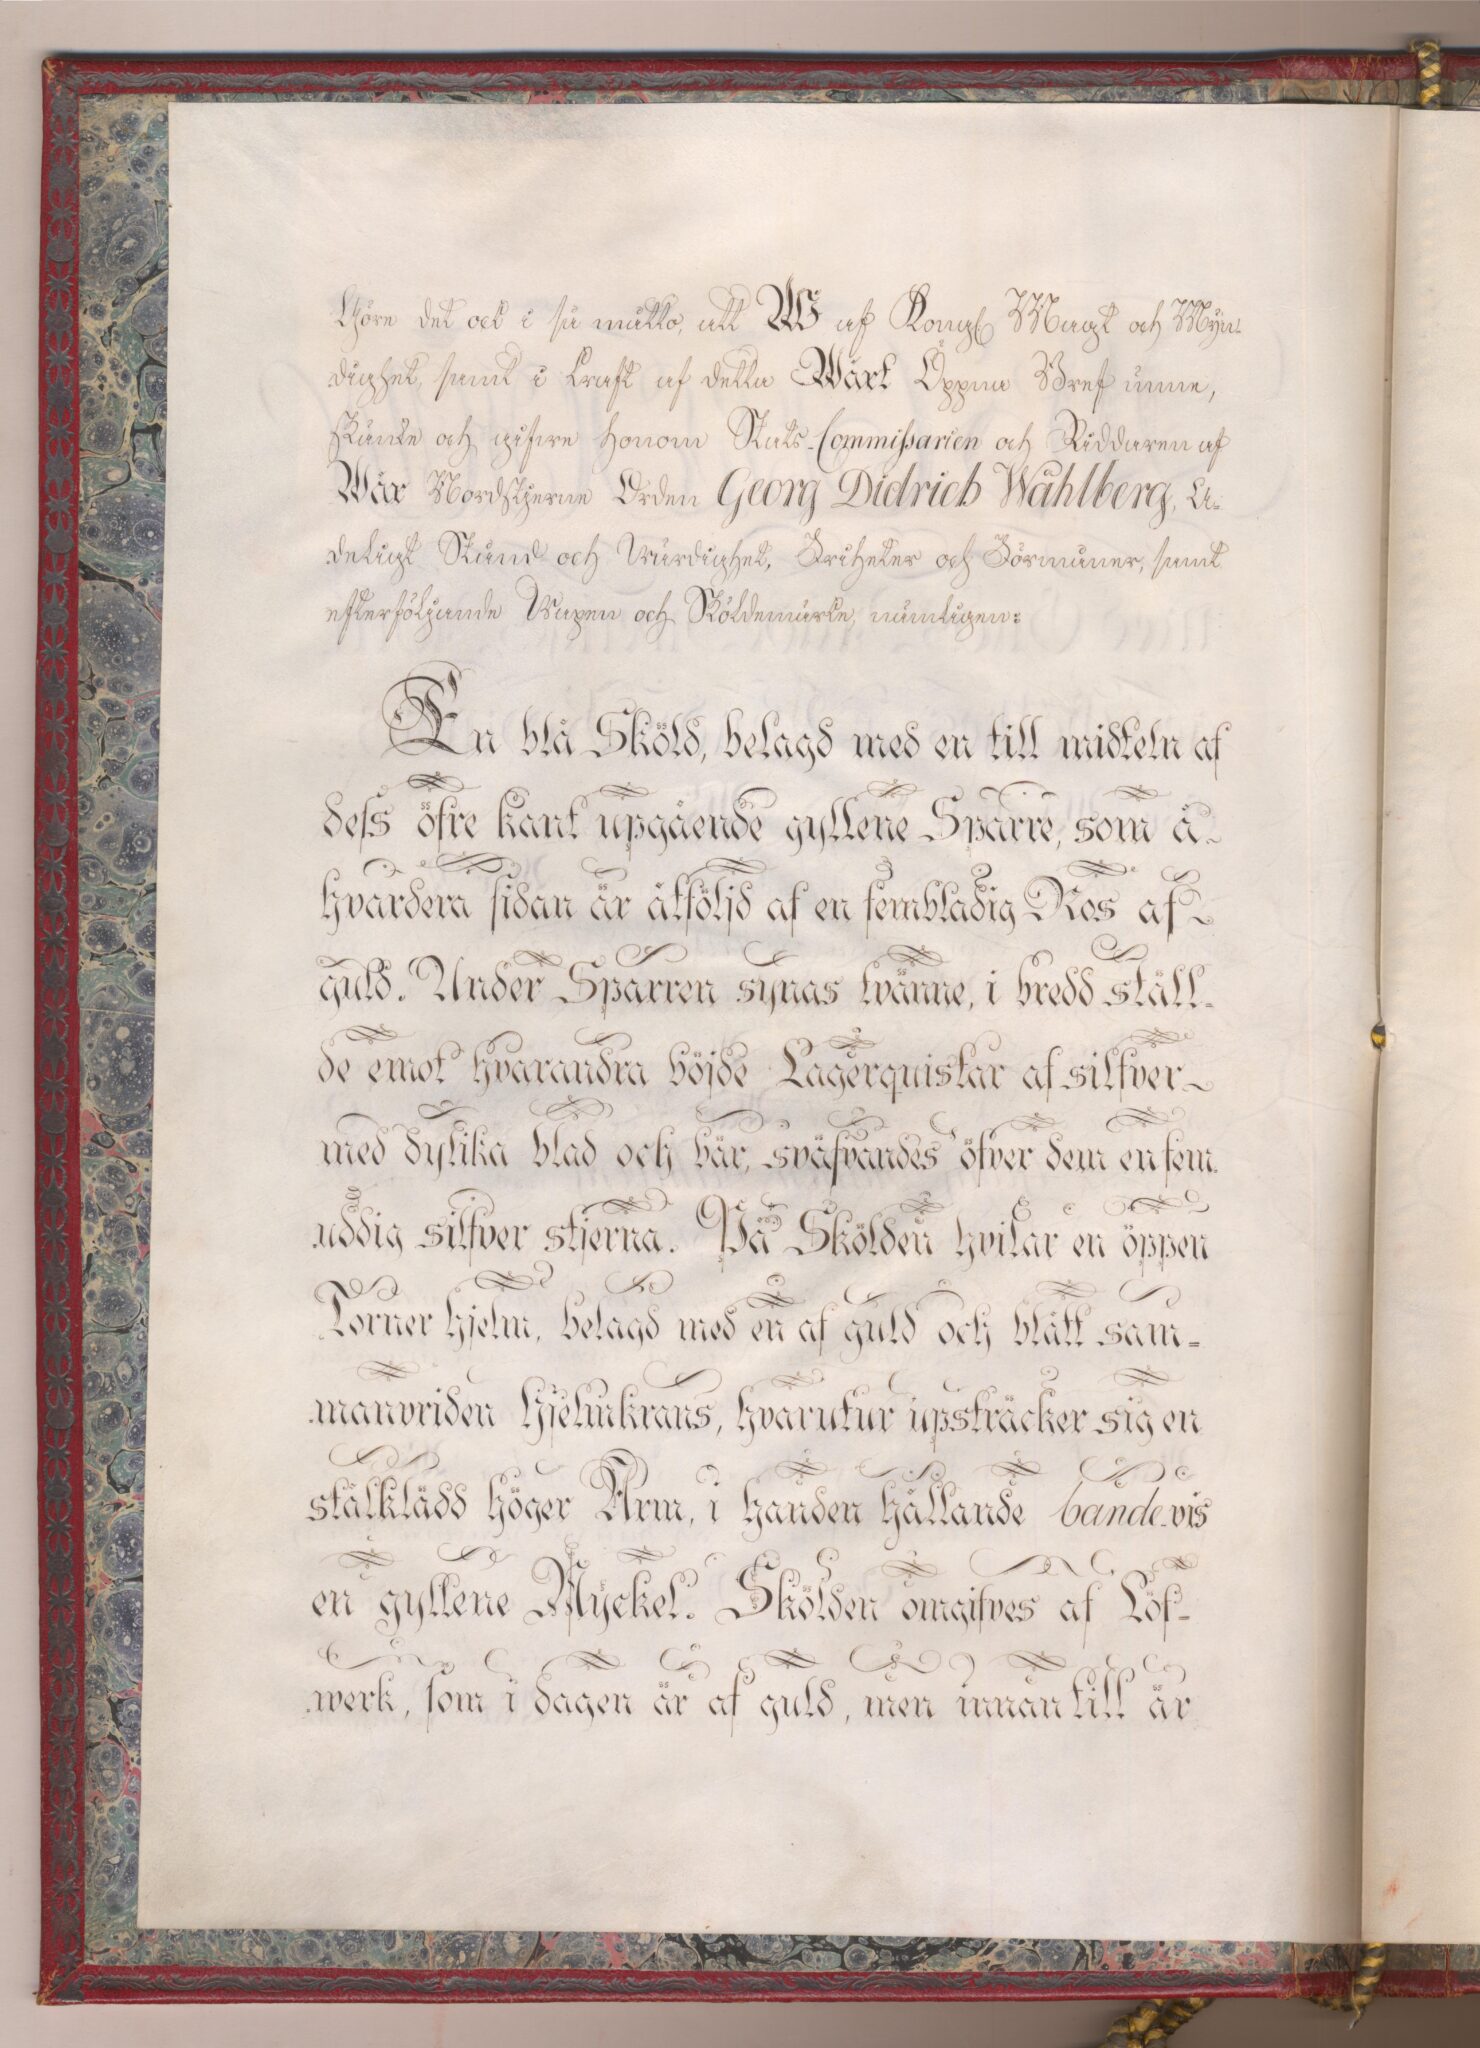 Göre det ock i så måtto, att Wi af Kongl Magt och Myn-
dighet, samt i kraft af detta Wårt Öppna Bref unne,
skänke och gifwe honom Stats-Commissarien och Riddaren af
Wår Nordstjerne Orden Georg Didrich Wåhlberg, A-
deligt Stånd och Wärdighet, Friheter och Förmåner, samt
efterföljande Wapen och Sköldemärke, nämligen:
En blå Sköld, belagd med en till midteln af
dess öfre kant upgående gyllene Sparre, som å
hvardera sidan är åtföljd af en fembladig Ros af
guld. Under Sparren synas tvänne, i bredd ställ-
de emot hvarandra böjde Lagerquistar af silfver
med dylika blad och bär, sväfvandes öfver dem en fem
uddig silfver stjerna. På Skölden hvilar en öppen
Torner hjelm, belagd med en af guld och blått sam-
manvriden hjelmkrans, hvarutur upsträcker sig en
stålklädd höger Arm, i handen hållande bande-vis
en gyllene Nyckel. Skölden omgifves af Löf-
werk, som i dagen är af guld, men innantill är